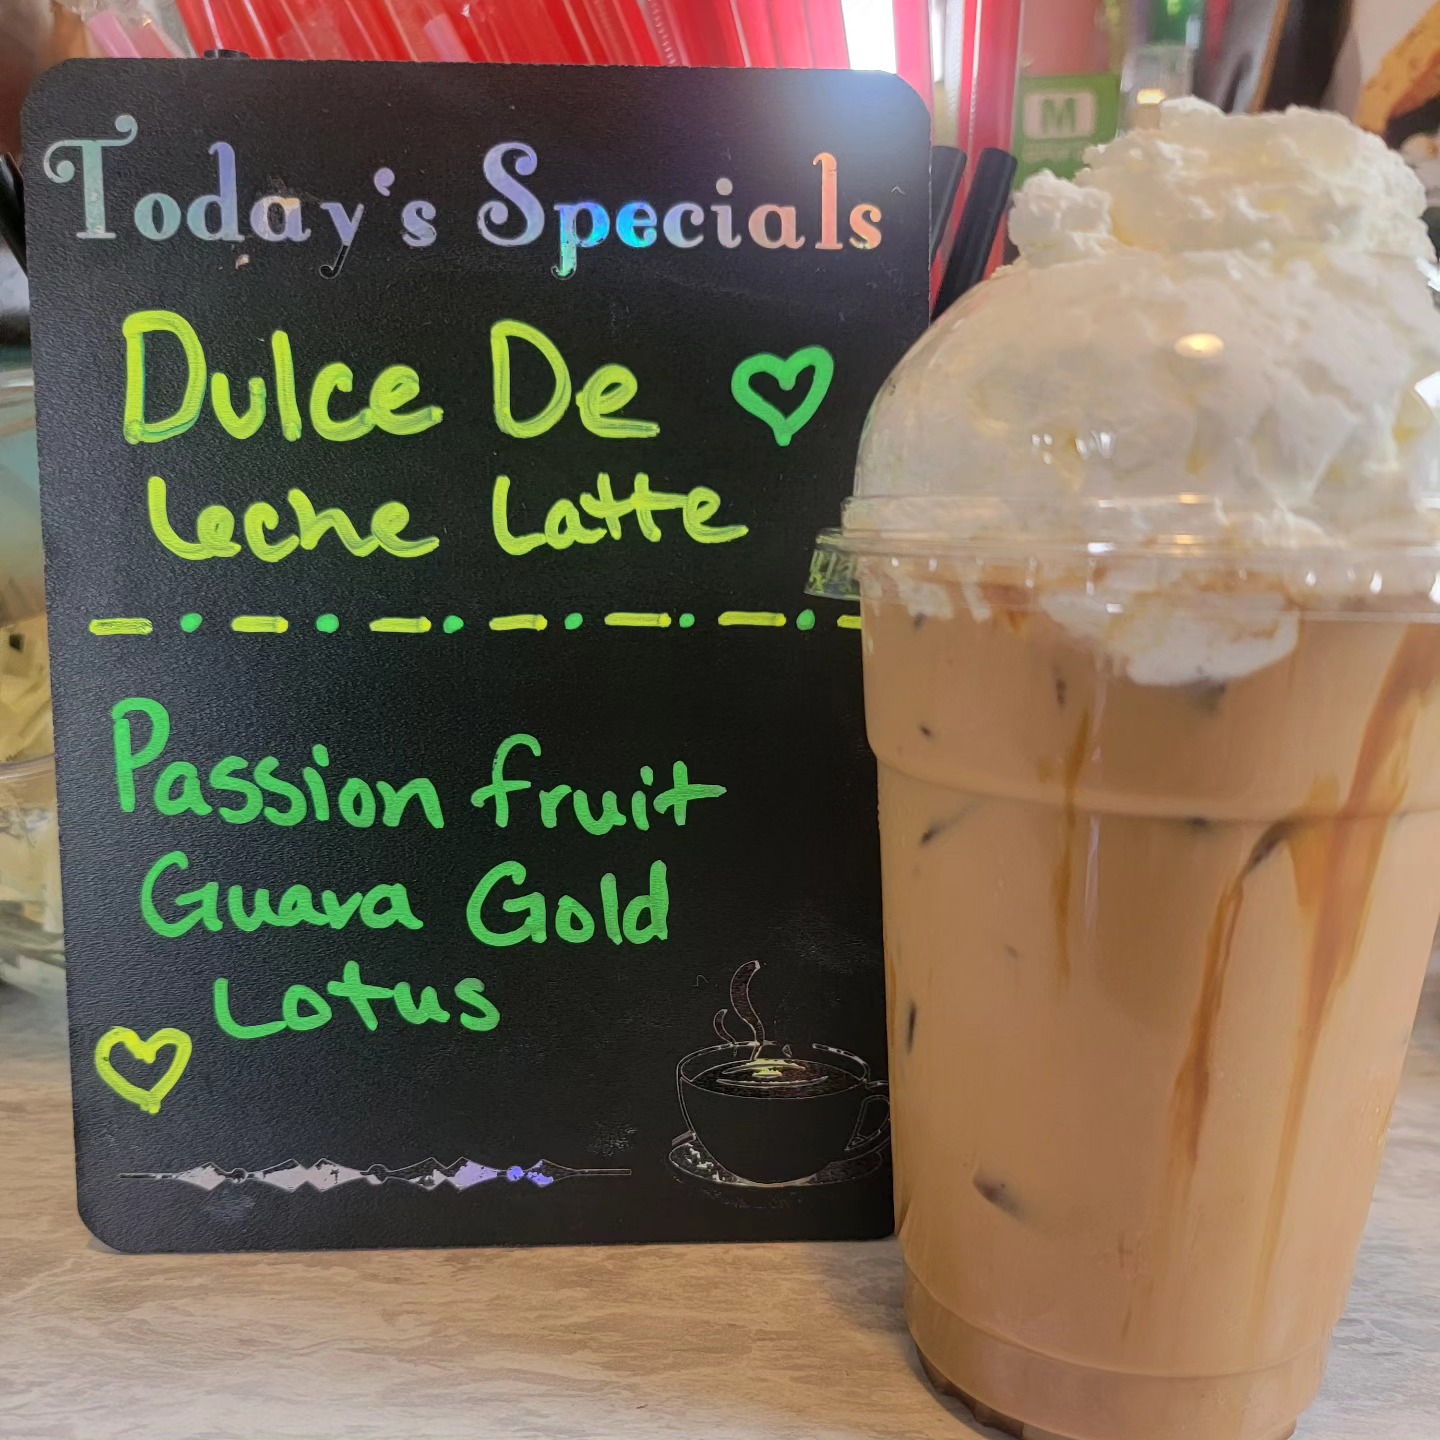 Today's Specials
Dulce De
Leche Latte
Passion fruit
Guava Gold
Lotus
M